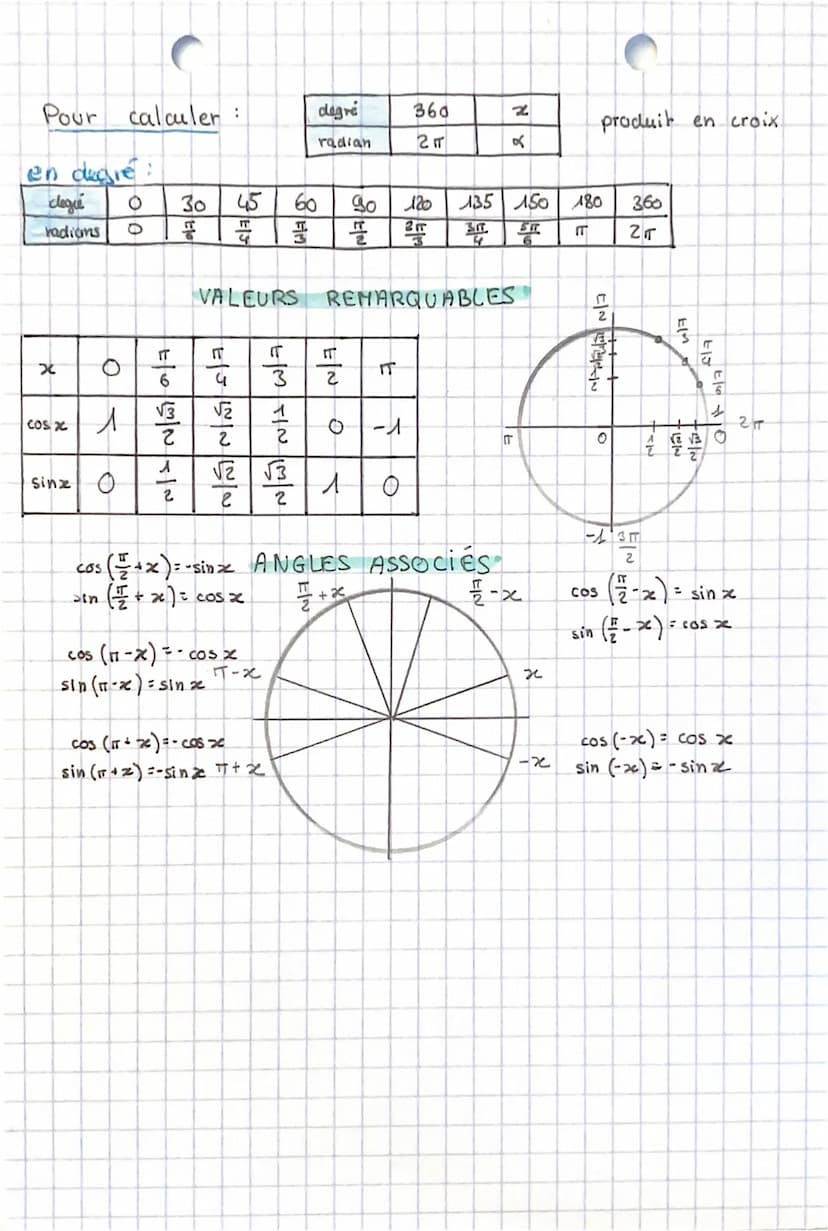 Pour calculer : degré 360 x produit en croix
radian 2π α
en degré :
degré 0 30 45 60 90 120 135 150 180 360
radians 0 π/6 π/4 π/3 π/2 2π/3 3π/4 5π/6 π 2π
VALEURS REMARQUABLES
x 0 π/6 π/4 π/3 π/2 π
cos x 1 √3/2 √2/2 1/2 0 -1
sin x 0 1/2 √2/2 √3/2 1 0
π/2
√3/2 π/3
√2/2 π/4
1/2 π/6
1
π 0 1/2 √2/2 √3/2 0 2π
-1 3π/2
ANGLES ASSOCIÉS
cos (π/2 + x) = -sin x
sin (π/2 + x) = cos x
π/2 + x
π/2 - x
cos (π/2 - x) = sin x
sin (π/2 - x) = cos x
cos (π - x) = - cos x
sin (π - x) = sin x
π - x
x
cos (π + x) = - cos x
sin (π + x) = - sin x
π + x
-x
cos (-x) = cos x
sin (-x) = - sin x